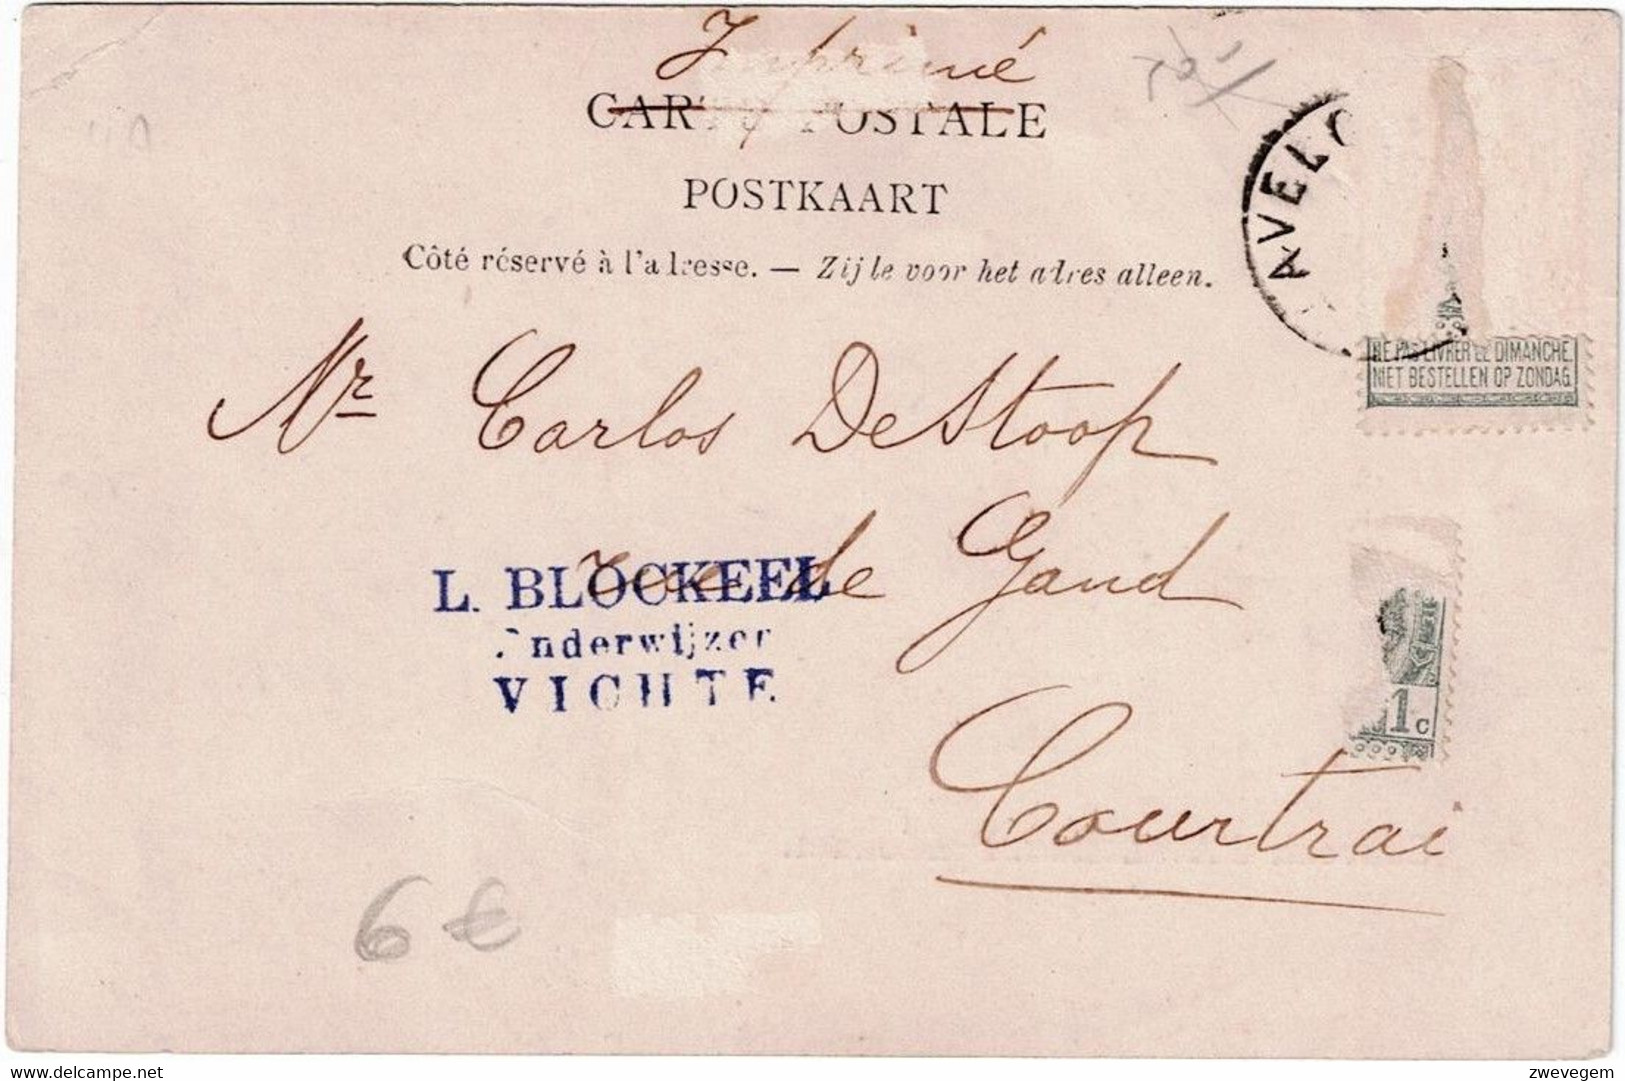 Imprimé
CARTE POSTALE
POSTKAART
Côté réservé à l'adresse. — Zijde voor het adres alleen.
AVELG
NE PAS LIVRER LE DIMANCHE.
NIET BESTELLEN OP ZONDAG
Mr Carlos DeStoop
rue de Gand
L. BLOCKEEL
Onderwijzer
VICHTE
1c
Courtrai
6 €
http://www.delcampe.net
zwevegem